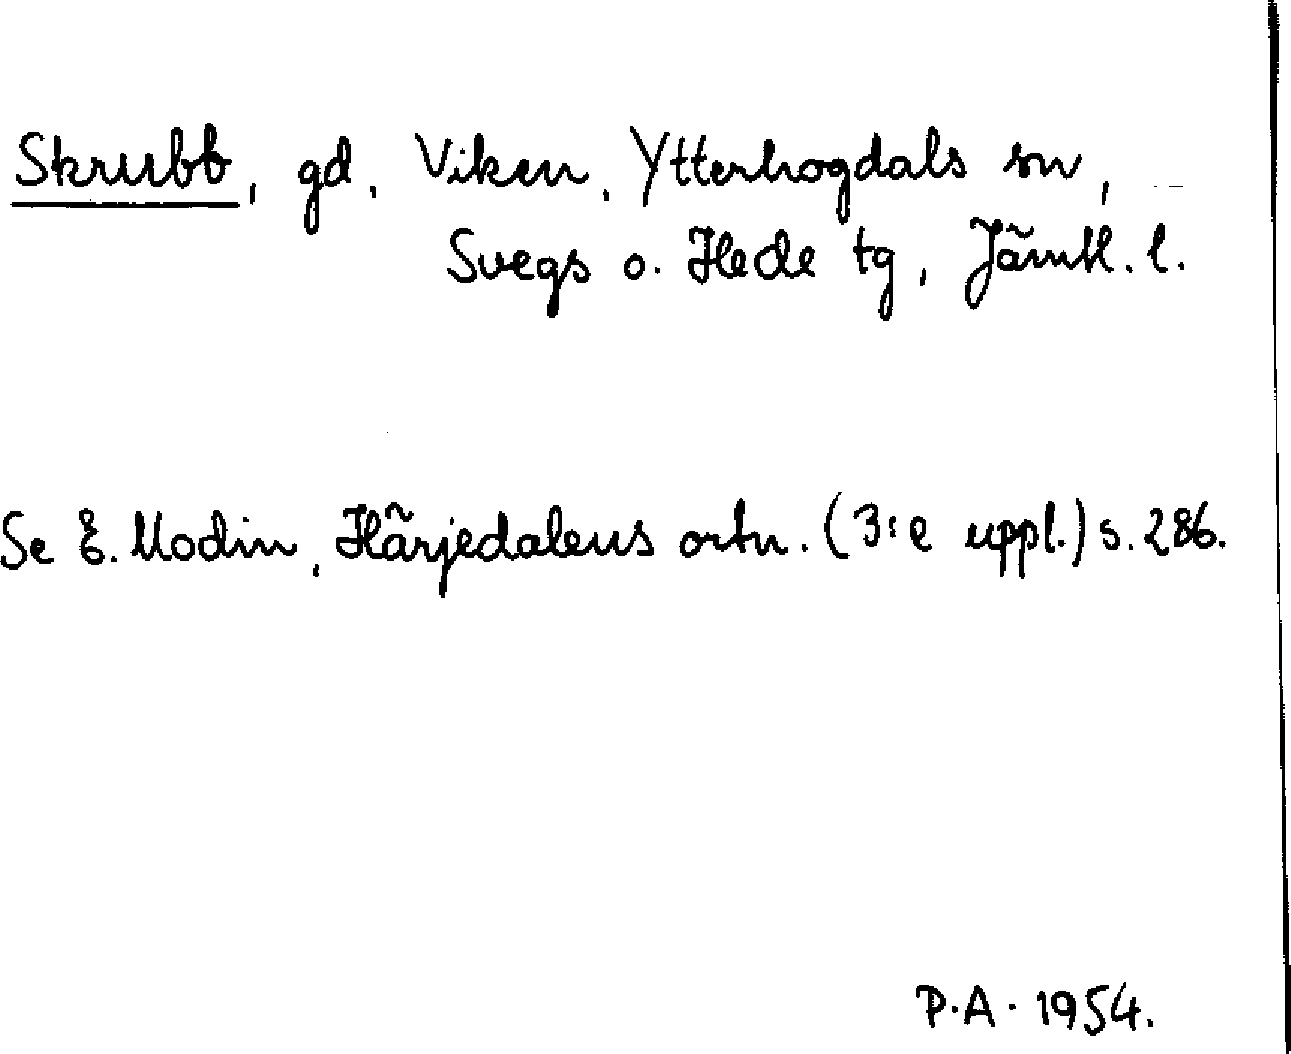 Skrubb, gd, Viken, Ytterhogdals sn,
Svegs o. Hede tg, Jämtl. l.
Se E. Modin, Härjedalens ortn. (3:e uppl.) s. 286.
P.A. 1954.